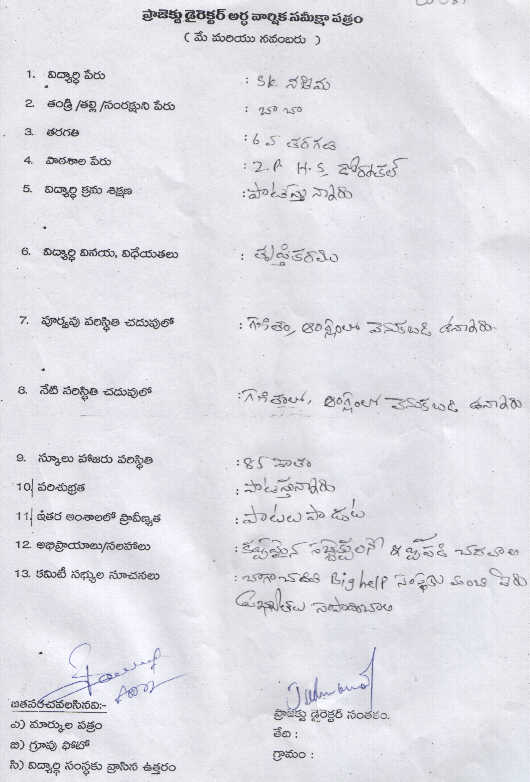 ప్రాజెక్టు డైరెక్టర్ అర్ధ వార్షిక సమీక్షా పత్రం
( మే మరియు నవంబరు )
1. విద్యార్థి పేరు : Sk నజీమ
2. తండ్రి /తల్లి /సంరక్షుని పేరు : బాబా
3. తరగతి : 6 వ తరగతి
4. పాఠశాల పేరు : Z.P H.S,
5. విద్యార్థి క్రమ శిక్షణ : పాటిస్తున్నారు
6. విద్యార్థి వినయ, విధేయతలు : తృప్తికరము
7. పూర్వపు పరిస్థితి చదువులో : గణితం, ఆంగ్లంలో వెనుకబడి ఉన్నారు.
8. నేటి పరిస్థితి చదువులో : గణితంలో, ఆంగ్లంలో వెనుకబడి ఉన్నారు
9. స్కూలు హాజరు పరిస్థితి : 85 శాతం
10. పరిశుభ్రత : పాటిస్తున్నారు
11. ఇతర అంశాలలో ప్రావీణ్యత : పాటలు పాడుట
12. అభిప్రాయాలు/సలహాలు : కష్టమైన సబ్జెక్టులలో చదవాలి
13. కమిటీ సభ్యుల సూచనలు : బాగా చదివి Big help సంస్థకు మంచి పేరు
సంపాదించాలి
జతపరచవలసినవి:-
ప్రాజెక్టు డైరెక్టర్ సంతకం.
ఎ) మార్కుల పత్రం
తేది :
బి) గ్రూపు ఫోటో
గ్రామం :
సి) విద్యార్థి సంస్థకు వ్రాసిన ఉత్తరం